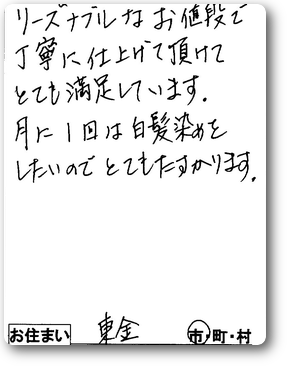 リーズナブルなお値段で
丁寧に仕上げて頂けて
とても満足しています.
月に1回は白髪染めを
したいのでとてもたすかります.
お住まい 東金 市・町・村